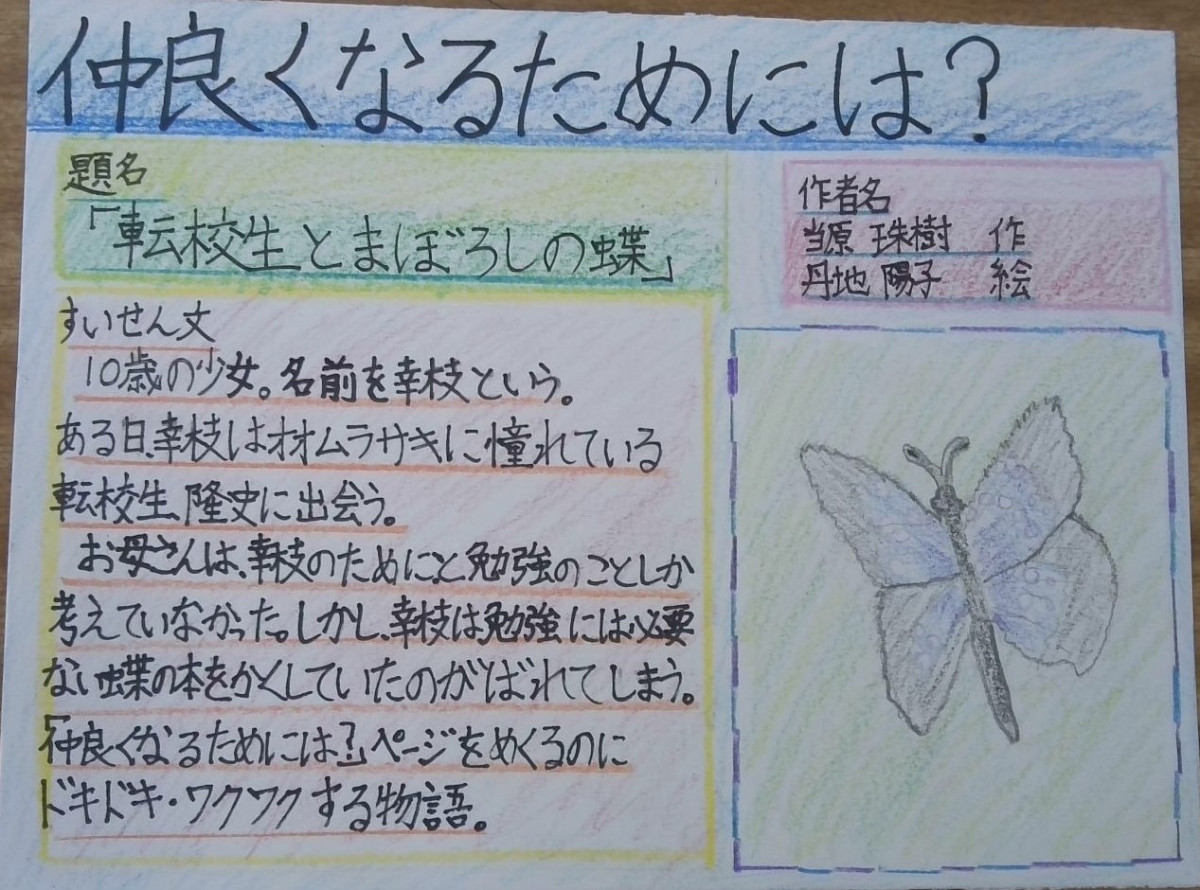 仲良くなるためには？
題名
「転校生とまぼろしの蝶」
作者名
当原 珠樹 作
丹地 陽子 絵
すいせん文
10歳の少女。名前を幸枝という。
ある日、幸枝はオオムラサキに憧れている
転校生、隆史に出会う。
お母さんは、幸枝のためにと勉強のことしか
考えていなかった。しかし、幸枝は勉強には必要
ない蝶の本をかくしていたのがばれてしまう。
「仲良くなるためには？」ページをめくるのに
ドキドキ・ワクワクする物語。